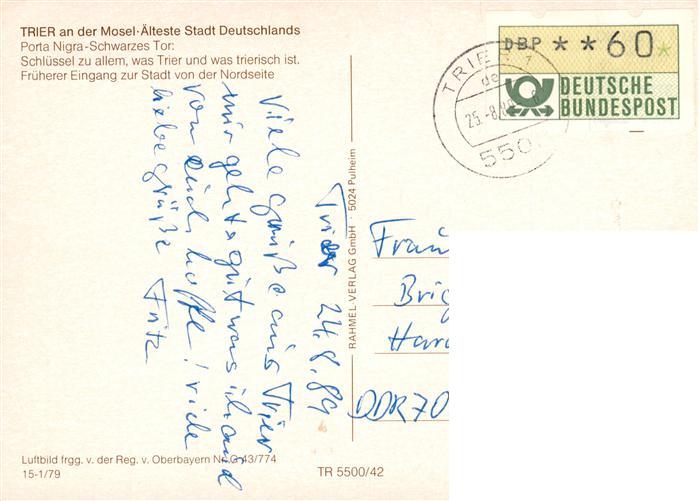 TRIER an der Mosel·Älteste Stadt Deutschlands
Porta Nigra-Schwarzes Tor:
Schlüssel zu allem, was Trier und was trierisch ist.
Früherer Eingang zur Stadt von der Nordseite
DBP **60*
DEUTSCHE
BUNDESPOST
TRIER
25.-8.
550
Trier 24.8.89
Viele grüße aus Trier
mir geht es gut was ich auch
von Euch hoffe! viele
liebe grüße Fritz
RAHMEL-VERLAG GmbH · 5024 Pulheim
Brig
DDR 70
Luftbild frgg. v. der Reg. v. Oberbayern Nr. G 43/774
15-1/79
TR 5500/42